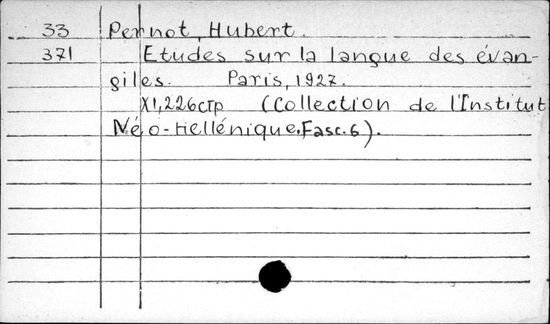 33 Pernot, Hubert.
371 Etudes sur la langue des évan-
giles. Paris, 1927.
XI, 226стр (Collection de l'Institut
Néo-Hellénique. Fasc. 6).